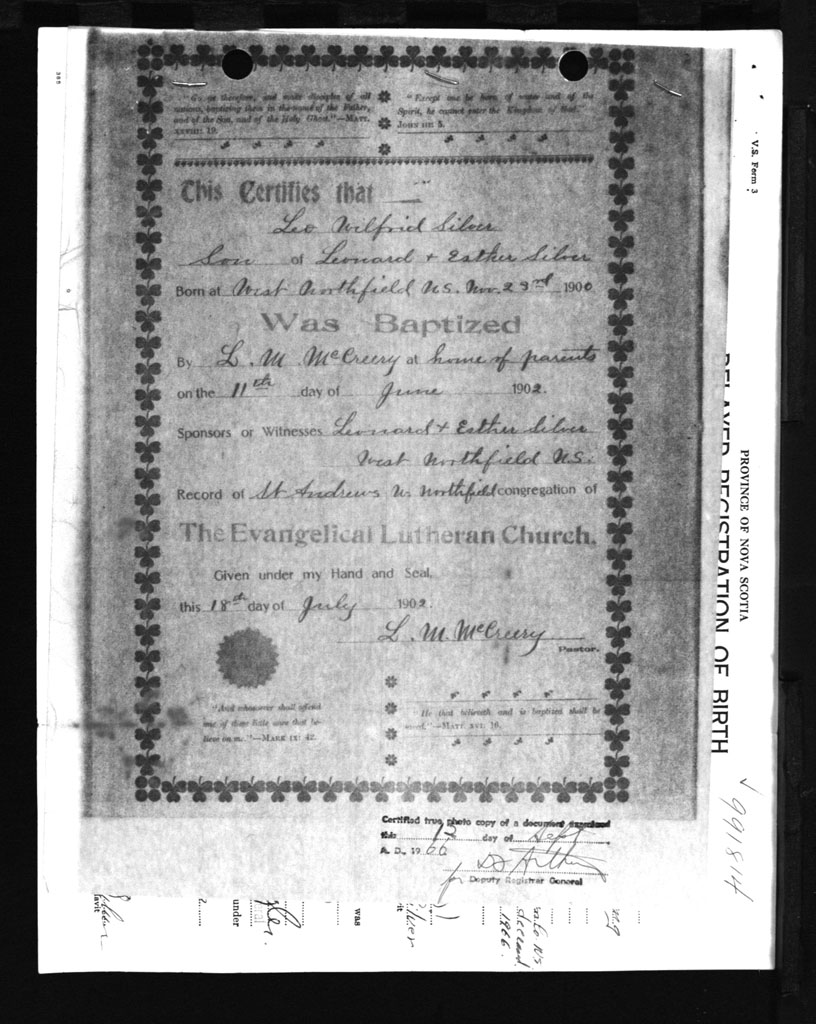 "Go ye therefore, and make disciples of all
nations, baptizing them in the name of the Father,
and of the Son, and of the Holy Ghost."—MATT.
XXVIII: 19.
"Except one be born of water and of the
Spirit, he cannot enter the Kingdom of God."
JOHN III: 5.
This Certifies that
Leo Wilfrid Silver
Son of Leonard + Esther Silver
Born at West Northfield N.S. Nov. 23rd 1900
Was Baptized
By L. M McCreery at home of parents
on the 11th day of June 1902.
Sponsors or Witnesses Leonard + Esther Silver
West Northfield N.S.
Record of St Andrews W. Northfield congregation of
The Evangelical Lutheran Church.
Given under my Hand and Seal,
this 18th day of July 1902.
L. M. McCreery
Pastor.
"And whosoever shall offend
one of these little ones that be-
lieve on me."—MARK IX: 42.
"He that believeth and is baptized shall be
saved."—MATT. XVI: 16.
Certified true photo copy of a document examined
this 12 day of Sept
A. D., 1966
for Deputy Registrar General
V.S. Form 3
PROVINCE OF NOVA SCOTIA
DELAYED REGISTRATION OF BIRTH
991814
under
was
1966.